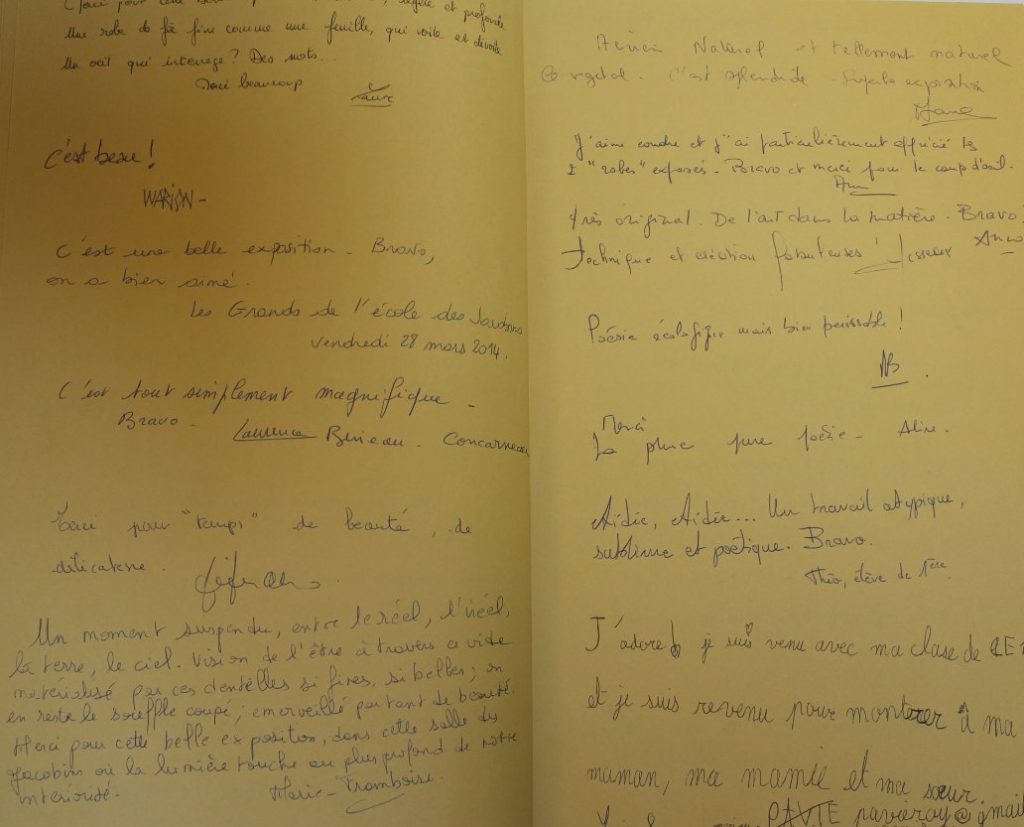 Merci pour cette
légère et profonde
Une robe de fée fine comme une feuille, qui voile et dévoile
Un oeil qui interroge? Des mots...
Merci beaucoup
Laure
C'est beau!
C'est une belle exposition - Bravo,
on a bien aimé.
Les Grands de l'école des
vendredi 28 mars 2014.
C'est tout simplement magnifique -
Bravo.
Laurence Concarneau
Merci pour "temps" de beauté, de
délicatesse.
Un moment suspendu, entre le réel, l'irréel,
la terre, le ciel. Vision de l'être à travers ce vide
matérialisé par ces dentelles si fines, si belles; on
en reste le souffle coupé; émerveillé par tant de beauté.
Merci pour cette belle exposition, dans cette salle des
Jacobins où la lumière touche au plus profond de notre
intériorité.
Marie-Framboise
Naturel et tellement naturel
végétal. C'est splendide - Superbe exposition
J'aime coudre et j'ai particulièrement apprécié les
2 "robes" exposés. Bravo et merci pour le coup d'oeil.
très original. De l'art dans la matière. Bravo!
Technique et création
Poésie écologique mais bien périssable!
Merci
La pure poésie -
Aidée, Aidée... Un travail atypique,
sublime et poétique. Bravo.
Théo, élève de 1ère
J'adore je suis venu avec ma clase de
et je suis revenu pour montrer à ma
maman, ma mamie et ma sœur.